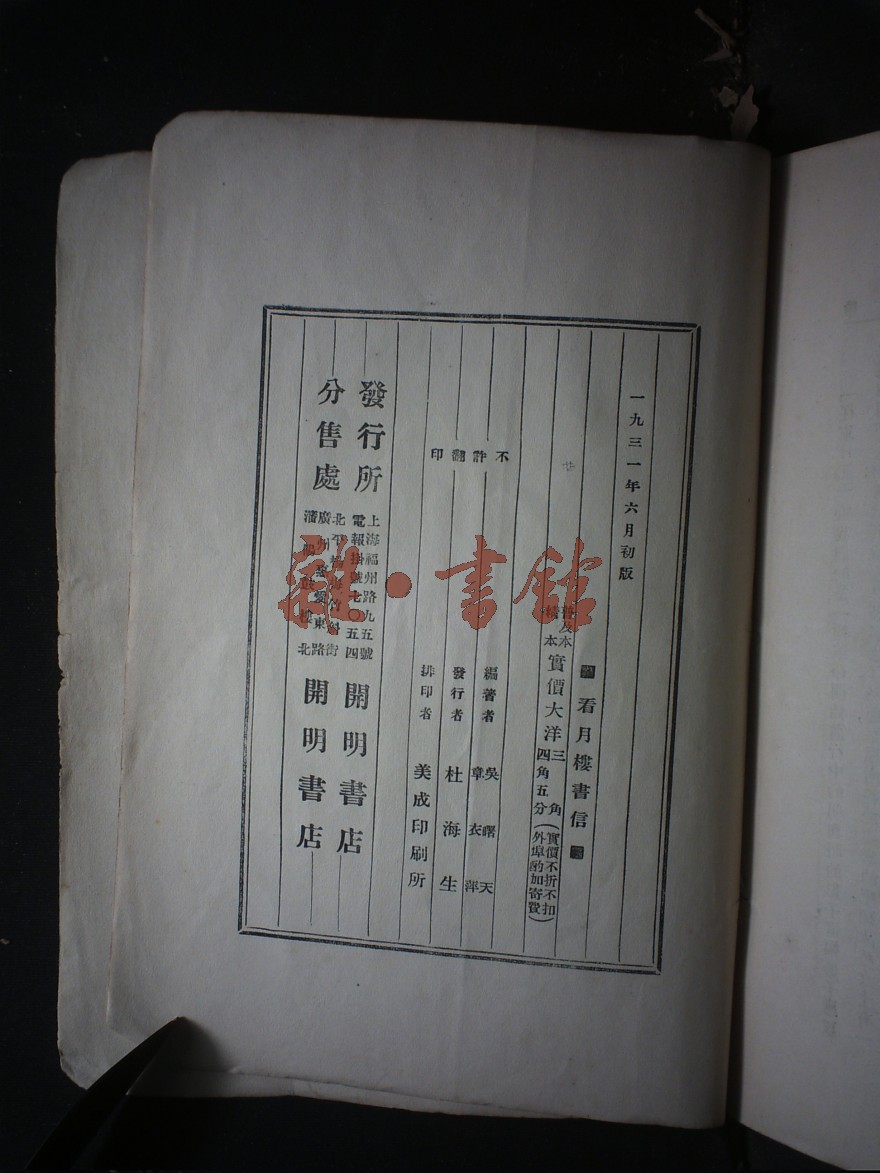 一九三一年六月初版
看月樓書信
普及本
本
實價大洋
三角
四角五分
(實價不折不扣
外埠酌加寄費)
不許翻印
編著者 吳曙天
章衣萍
發行者 杜海生
排印者 美成印刷所
發行所
上海福州路九五號
電報掛號七〇五四
開明書店
分售處
北平楊梅竹斜街
廣州惠愛東路
瀋陽鼓樓北
開明書店
雜·書館